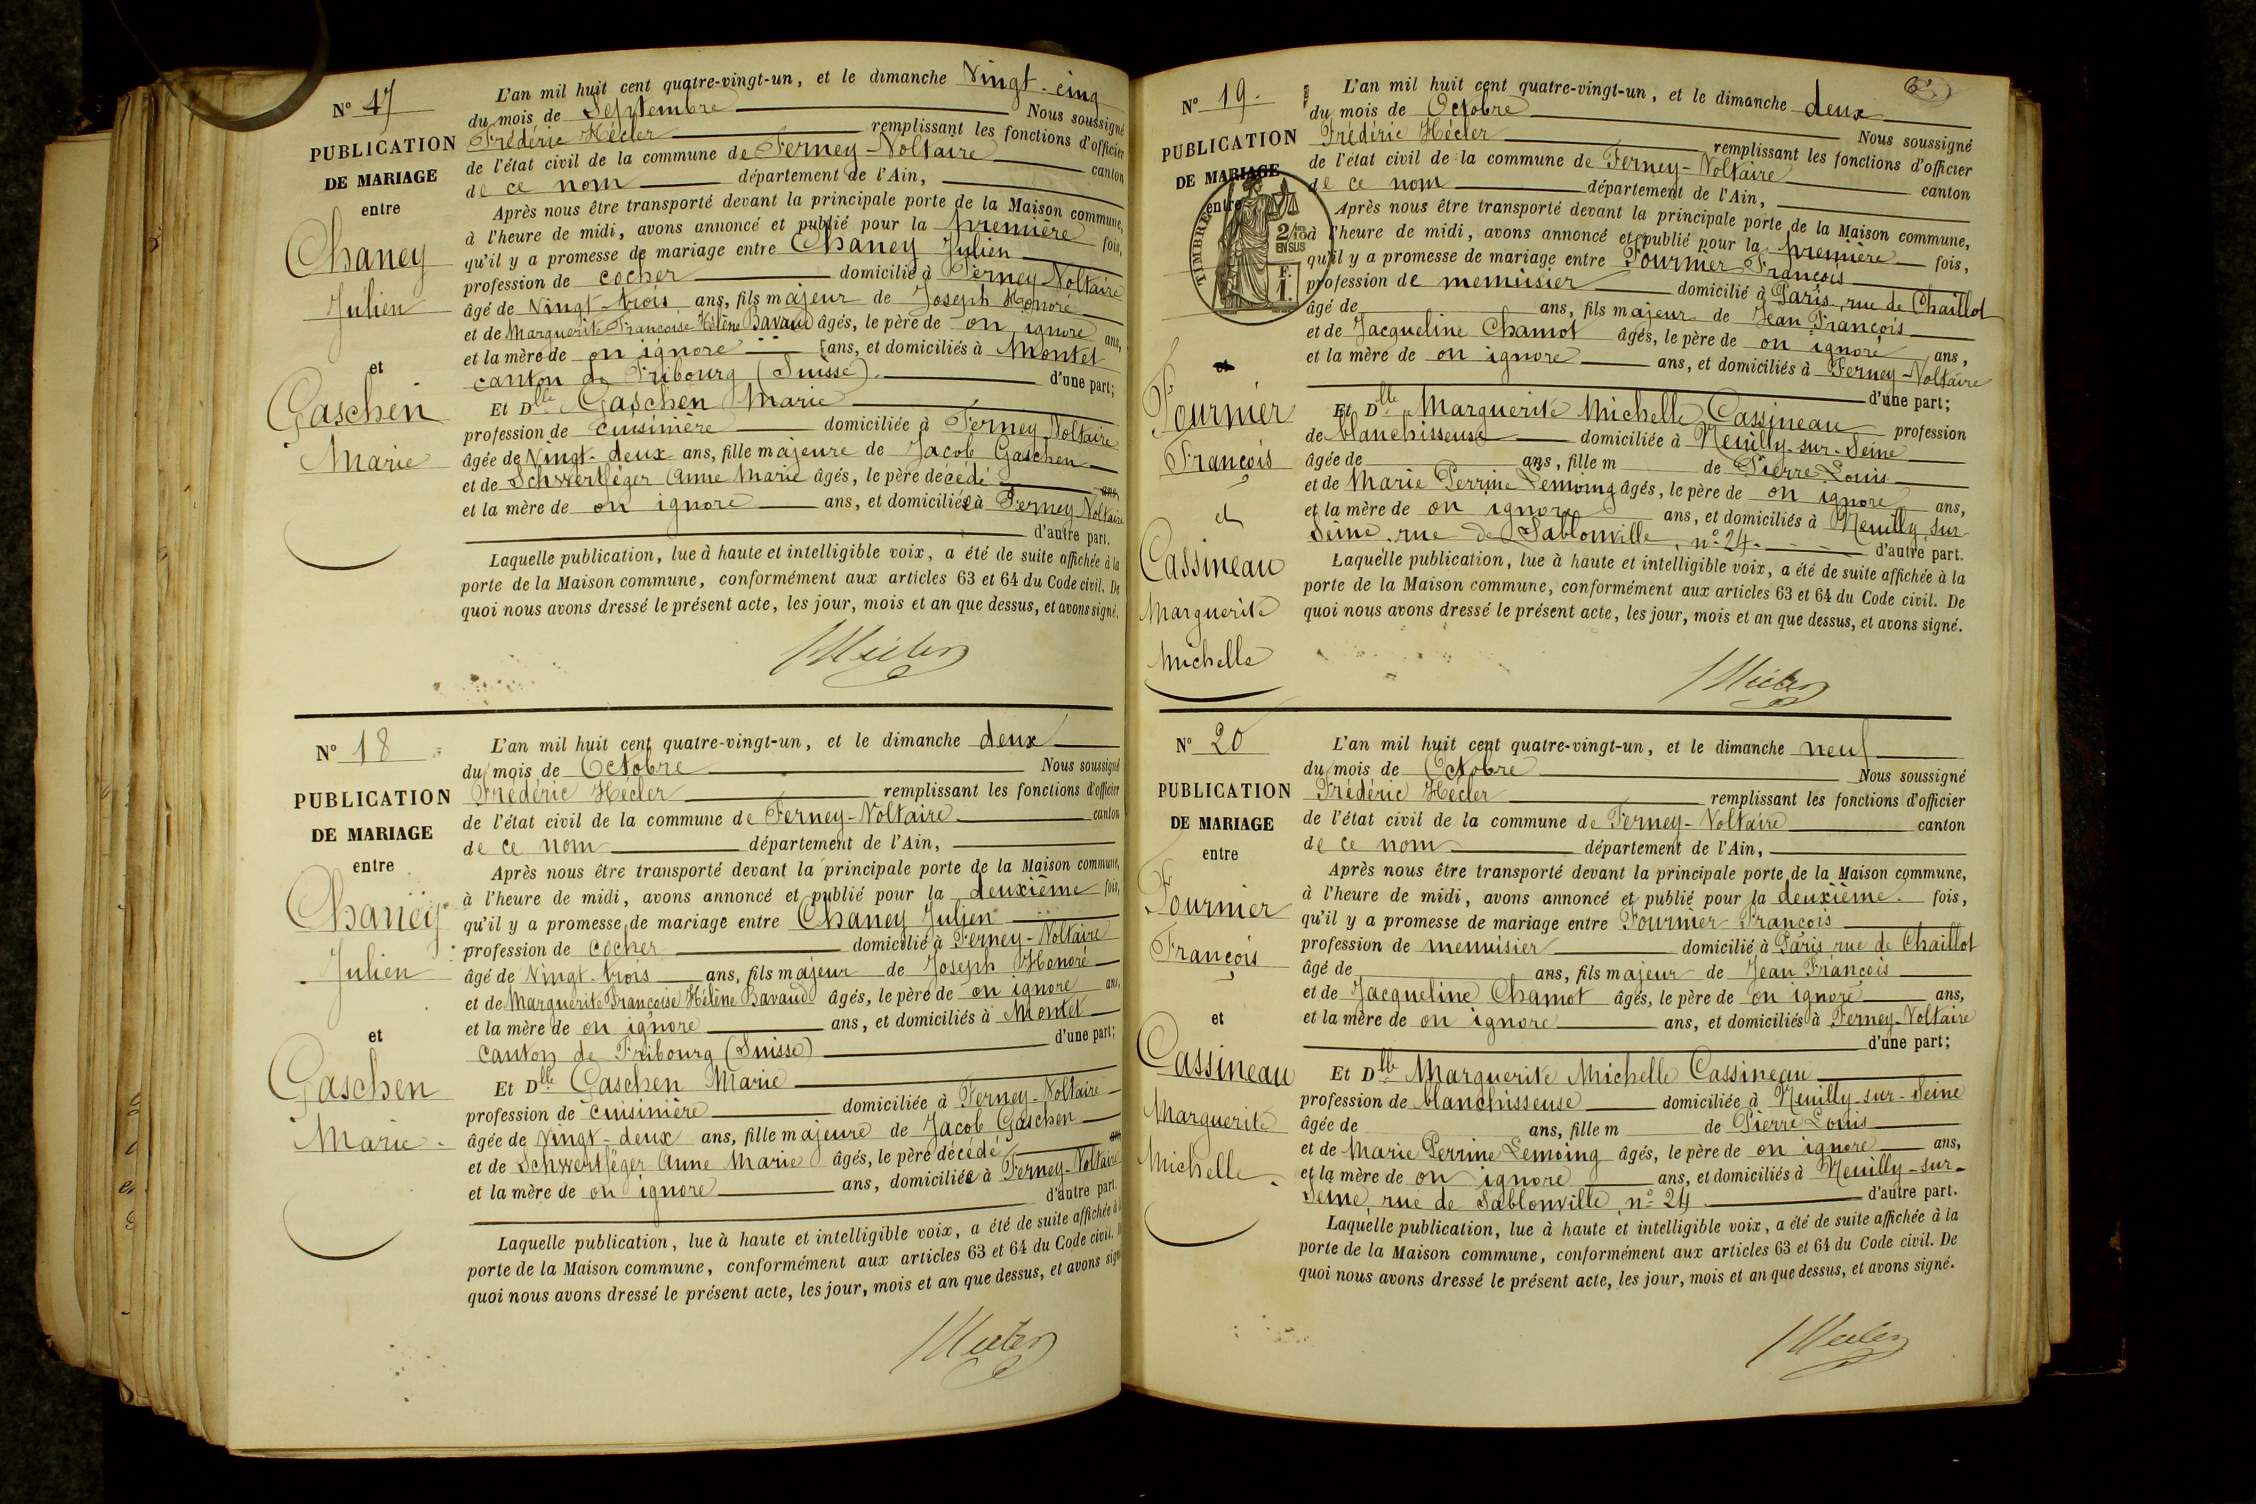 N° 17
PUBLICATION
DE MARIAGE
entre
Chaney
Julien
et
Gaschen
Marie
L'an mil huit cent quatre-vingt-un, et le dimanche Vingt-cinq
du mois de Septembre Nous soussigné
Frédéric Hécler remplissant les fonctions d'officier
de l'état civil de la commune de Ferney-Voltaire canton
de ce nom département de l'Ain,
Après nous être transporté devant la principale porte de la Maison commune,
à l'heure de midi, avons annoncé et publié pour la première fois,
qu'il y a promesse de mariage entre Chaney Julien
profession de cocher domicilié à Ferney Voltaire
âgé de Vingt-trois ans, fils majeur de Joseph Honoré
et de Marguerite Françoise Hélène Bavaud âgés, le père de on ignore ans,
et la mère de on ignore ans, et domiciliés à Montet
canton de Fribourg (Suisse). d'une part;
Et Dlle Gaschen Marie
profession de cuisinière domiciliée à Ferney Voltaire
âgée de Vingt-deux ans, fille majeure de Jacob Gaschen
et de Schwertfèger Anne Marie âgés, le père décédé ans,
et la mère de on ignore ans, et domiciliée à Ferney Voltaire
d'autre part.
Laquelle publication, lue à haute et intelligible voix, a été de suite affichée à la
porte de la Maison commune, conformément aux articles 63 et 64 du Code civil. De
quoi nous avons dressé le présent acte, les jour, mois et an que dessus, et avons signé.
Hécler
N° 18
PUBLICATION
DE MARIAGE
entre
Chaney
Julien
et
Gaschen
Marie
L'an mil huit cent quatre-vingt-un, et le dimanche deux
du mois de Octobre Nous soussigné
Frédéric Hécler remplissant les fonctions d'officier
de l'état civil de la commune de Ferney-Voltaire canton
de ce nom département de l'Ain,
Après nous être transporté devant la principale porte de la Maison commune,
à l'heure de midi, avons annoncé et publié pour la deuxième fois,
qu'il y a promesse de mariage entre Chaney Julien
profession de cocher domicilié à Ferney-Voltaire
âgé de Vingt-trois ans, fils majeur de Joseph Honoré
et de Marguerite Françoise Hélène Bavaud âgés, le père de on ignore ans,
et la mère de on ignore ans, et domiciliés à Montet
canton de Fribourg (Suisse) d'une part;
Et Dlle Gaschen Marie
profession de cuisinière domiciliée à Ferney-Voltaire
âgée de Vingt-deux ans, fille majeure de Jacob Gaschen
et de Schwertfèger Anne Marie âgés, le père décédé ans
et la mère de on ignore ans, domiciliée à Ferney-Voltaire
d'autre part.
Laquelle publication, lue à haute et intelligible voix, a été de suite affichée à l
porte de la Maison commune, conformément aux articles 63 et 64 du Code civil. D
quoi nous avons dressé le présent acte, les jour, mois et an que dessus, et avons signé
Hécler
N° 19.
PUBLICATION
DE MARIAGE
entre
TIMBRE
2/10
EN SUS
F.
1.
et
Fournier
François
et
Cassineau
Marguerite
Michelle
L'an mil huit cent quatre-vingt-un, et le dimanche deux
du mois de Octobre Nous soussigné
Frédéric Hécler remplissant les fonctions d'officier
de l'état civil de la commune de Ferney-Voltaire canton
de ce nom département de l'Ain,
Après nous être transporté devant la principale porte de la Maison commune,
à l'heure de midi, avons annoncé et publié pour la première fois,
qu'il y a promesse de mariage entre Fournier François
profession de menuisier domicilié à Paris, rue de Chaillot
âgé de ans, fils majeur de Jean François
et de Jacqueline Chamot âgés, le père de on ignore ans,
et la mère de on ignore ans, et domiciliés à Ferney-Voltaire
d'une part;
Et Dlle Marguerite Michelle Cassineau profession
de blanchisseuse domiciliée à Neuilly-sur-Seine
âgée de ans, fille m de Pierre Louis
et de Marie Perrine Lemoing âgés, le père de on ignore ans,
et la mère de on ignore ans, et domiciliés à Neuilly sur
Seine, rue de Sablonville, n° 24. d'autre part.
Laquelle publication, lue à haute et intelligible voix, a été de suite affichée à la
porte de la Maison commune, conformément aux articles 63 et 64 du Code civil. De
quoi nous avons dressé le présent acte, les jour, mois et an que dessus, et avons signé.
Hécler
N° 20
PUBLICATION
DE MARIAGE
entre
Fournier
François
et
Cassineau
Marguerite
Michelle
L'an mil huit cent quatre-vingt-un, et le dimanche neuf
du mois de Octobre Nous soussigné
Frédéric Hécler remplissant les fonctions d'officier
de l'état civil de la commune de Ferney-Voltaire canton
de ce nom département de l'Ain,
Après nous être transporté devant la principale porte de la Maison commune,
à l'heure de midi, avons annoncé et publié pour la deuxième fois,
qu'il y a promesse de mariage entre Fournier François
profession de menuisier domicilié à Paris rue de Chaillot
âgé de ans, fils majeur de Jean François
et de Jacqueline Chamot âgés, le père de on ignore ans,
et la mère de on ignore ans, et domiciliés à Ferney-Voltaire
d'une part;
Et Dlle Marguerite Michelle Cassineau
profession de blanchisseuse domiciliée à Neuilly-sur-Seine
âgée de ans, fille m de Pierre Louis
et de Marie Perrine Lemoing âgés, le père de on ignore ans,
et la mère de on ignore ans, et domiciliés à Neuilly-sur-
Seine, rue de Sablonville, n° 24 d'autre part.
Laquelle publication, lue à haute et intelligible voix, a été de suite affichée à la
porte de la Maison commune, conformément aux articles 63 et 64 du Code civil. De
quoi nous avons dressé le présent acte, les jour, mois et an que dessus, et avons signé.
Hécler